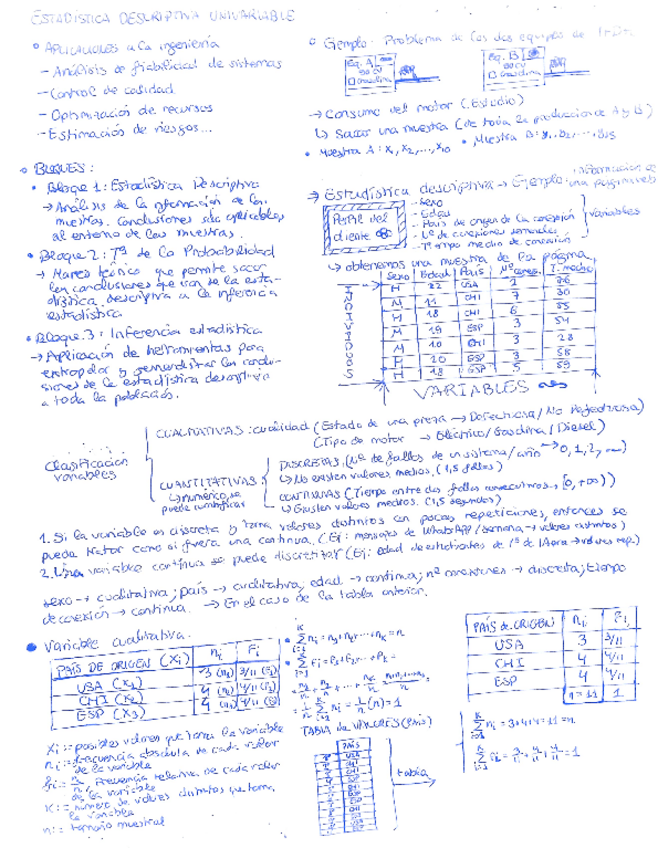 ESTADÍSTICA DESCRIPTIVA UNIVARIABLE
• APLICACIONES a la ingeniería
– Análisis de fiabilidad de sistemas
– Control de calidad
– Optimización de recursos
– Estimación de riesgos...
• Ejemplo: Problema de los dos equipos de
Eq. A
90 CV
Gasolina
Eq. B
90 CV
Gasolina
→ Consumo del motor (Estudio)
↳ Sacar una muestra (de toda la producción de A y B)
• Muestra A: x1, x2, ..., x10 • Muestra B: y1, y2, ...,
• BLOQUES:
• Bloque 1: Estadística Descriptiva
→ Análisis de la información de las
muestras. Conclusiones sólo aplicables
al entorno de las muestras.
• Bloque 2: Tª de la Probabilidad
→ Marco teórico que permite sacar
las conclusiones que van de la esta-
dística descriptiva a la inferencia
estadística
• Bloque 3: Inferencia estadística
→ Aplicación de herramientas para
extrapolar y generalizar las conclu-
siones de la estadística descriptiva
a toda la población.
→ Estadística descriptiva → Ejemplo: información de una página web
Perfil del cliente
– Sexo
– Edad
– País de origen de la conexión
– Nº de conexiones semanales
– Tiempo medio de conexión
Variables
↳ obtenemos una muestra de la página.
INDIVIDUOS
Sexo Edad País Nº conex. T. medio
H 22 USA 1 26
M 11 CHI 7 30
H 18 CHI 6 35
M 19 ESP 3 54
M 10 CHI 3 28
H 20 ESP 3 58
H 18 ESP 5 59
VARIABLES
Clasificación variables
CUALITATIVAS: cualidad (Estado de una pieza → Defectuosa / No Defectuosa)
(Tipo de motor → Eléctrico / Gasolina / Diesel)
CUANTITATIVAS
↳ numérico, se puede cuantificar
DISCRETAS: (Nº de fallos de un sistema/año → 0, 1, 2, ...)
↳ No existen valores medios. (1,5 fallos)
CONTINUAS (Tiempo entre dos fallos consecutivos → [0, +∞))
↳ Existen valores medios. (1,5 segundos)
1. Si la variable es discreta y toma valores distintos con pocas repeticiones, entonces se
puede tratar como si fuera una continua. (Ej: mensajes de WhatsApp/semana → valores distintos)
2. Una variable continua se puede discretizar (Ej: edad de estudiantes de 1º de → valores rep.)
sexo → cualitativa; país → cualitativa; edad → continua; nº conexiones → discreta; tiempo
de conexión → continua. → En el caso de la tabla anterior.
• Variable cualitativa.
PAÍS DE ORIGEN (Xi) ni Fi
USA (x1) 3 (n1) 3/11 (F1)
CHI (x2) 4 (n2) 4/11 (F2)
ESP (x3) 4 (n3) 4/11 (F3)
Xi := posibles valores que toma la variable
ni := frecuencia absoluta de cada valor
de la variable
fi = ni/n Frecuencia relativa de cada valor
de la variable
K := número de valores distintos que toma
la variable
n := tamaño muestral
• Σ ni = n1+n2+...+nk = n
• Σ Fi = F1+F2+...+Fk =
= n1/n + n2/n + ... + nk/n = n1+n2+...+nk/n =
= 1/n Σ ni = 1/n (n) = 1
TABLA de VALORES (País)
PAÍS
USA
CHI
CHI
ESP
CHI
ESP
ESP
tabla
PAÍS de ORIGEN ni Fi
USA 3 3/11
CHI 4 4/11
ESP 4 4/11
n = 11 1
Σ ni = 3+4+4 = 11 = n.
Σ fi = 3/11 + 4/11 + 4/11 = 1